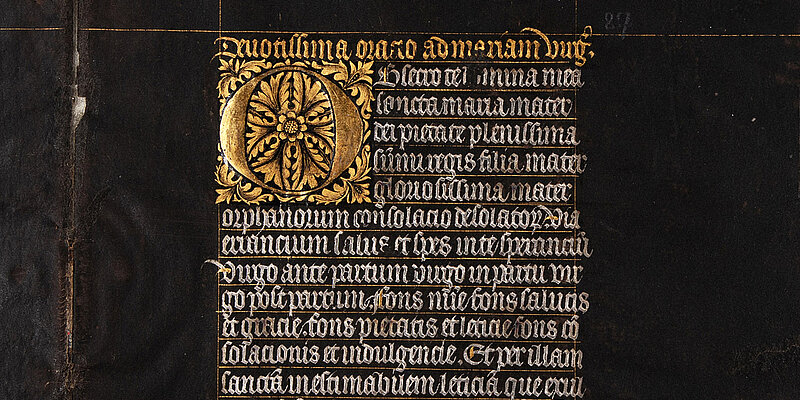 87
Deuotissima oracio ad mariam virg̉.
Obsecro te domina mea
sancta maria mater
dei pietate plenissima
sūmi regis filia mater
gloriosissima mater
orphanorum consolacio desolatoꝝ. Via
errancium salus et spes in te speranciū
virgo ante partum virgo in partu vir
go post partum. fons mīe fons salutis
et gracie. fons pietatis et leticie fons cō
solacionis et indulgencie. Et per illam
sanctā inestimabilem leticiā que exul